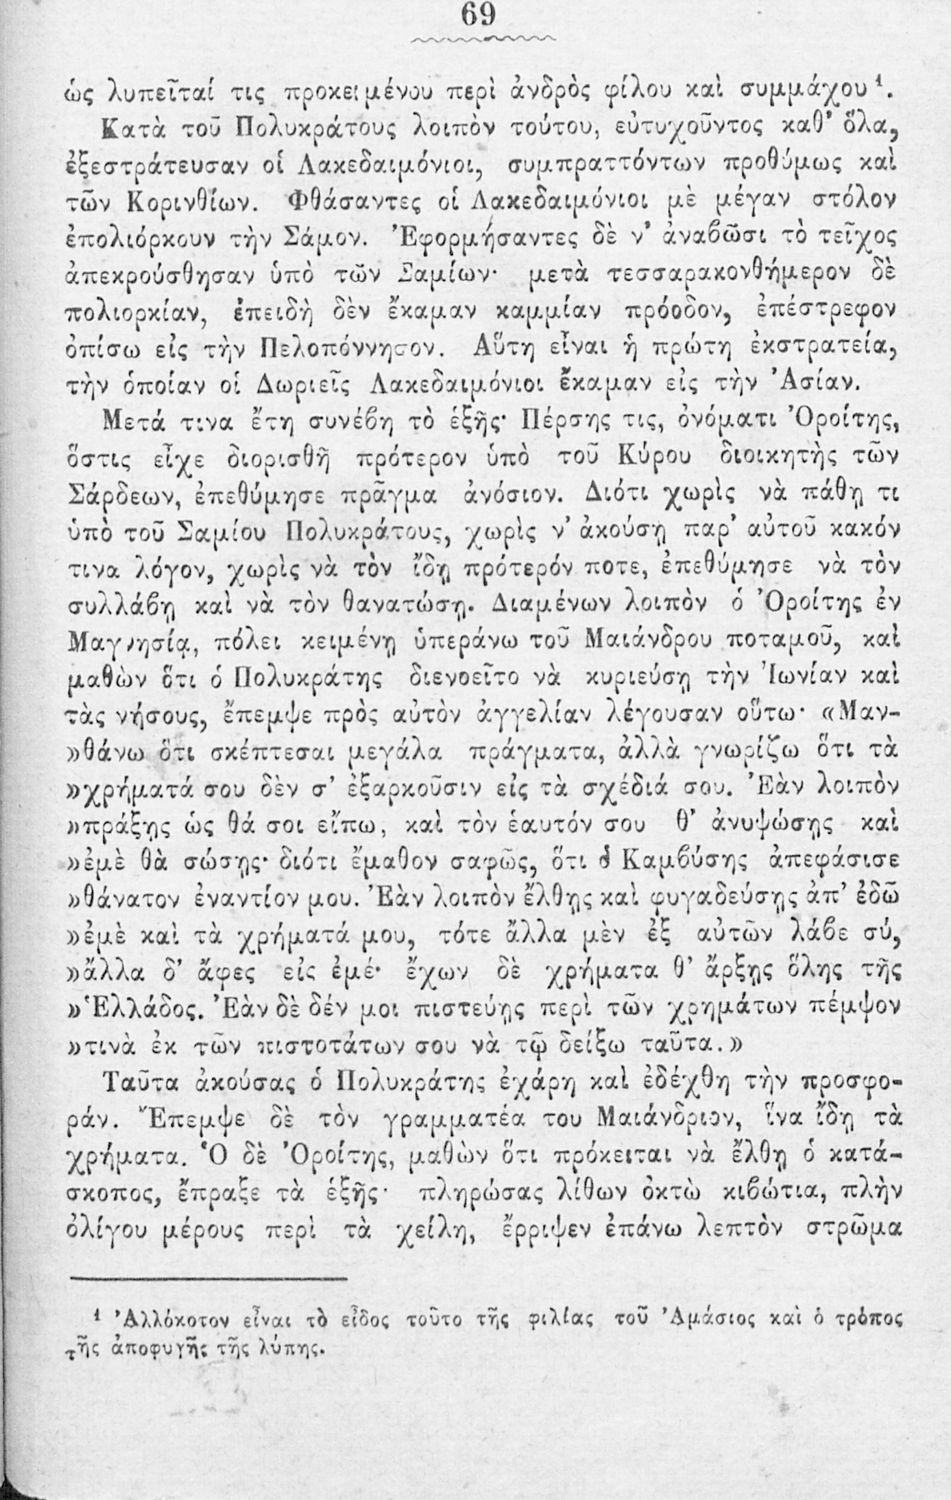 69
ὡς λυπεῖταί τις προκειμένου περὶ ἀνδρὸς φίλου καὶ συμμάχου ¹.
Κατὰ τοῦ Πολυκράτους λοιπὸν τούτου, εὐτυχοῦντος καθ’ ὅλα,
ἐξεστράτευσαν οἱ Λακεδαιμόνιοι, συμπραττόντων προθύμως καὶ
τῶν Κορινθίων. Φθάσαντες οἱ Λακεδαιμόνιοι μὲ μέγαν στόλον
ἐπολιόρκουν τὴν Σάμον. Ἐφορμήσαντες δὲ ν’ ἀναβῶσι τὸ τεῖχος
ἀπεκρούσθησαν ὑπὸ τῶν Σαμίων· μετὰ τεσσαρακονθήμερον δὲ
πολιορκίαν, ἐπειδὴ δὲν ἔκαμαν καμμίαν πρόοδον, ἐπέστρεφον
ὀπίσω εἰς τὴν Πελοπόννησον. Αὕτη εἶναι ἡ πρώτη ἐκστρατεία,
τὴν ὁποίαν οἱ Δωριεῖς Λακεδαιμόνιοι ἔκαμαν εἰς τὴν Ἀσίαν.
Μετά τινα ἔτη συνέβη τὸ ἑξῆς· Πέρσης τις, ὀνόματι Ὀροίτης,
ὅστις εἶχε διορισθῆ πρότερον ὑπὸ τοῦ Κύρου διοικητὴς τῶν
Σάρδεων, ἐπεθύμησε πρᾶγμα ἀνόσιον. Διότι χωρὶς νὰ πάθῃ τι
ὑπὸ τοῦ Σαμίου Πολυκράτους, χωρὶς ν’ ἀκούσῃ παρ’ αὐτοῦ κακόν
τινα λόγον, χωρὶς νὰ τὸν ἴδῃ πρότερόν ποτε, ἐπεθύμησε νὰ τὸν
συλλάβῃ καὶ νὰ τὸν θανατώσῃ. Διαμένων λοιπὸν ὁ Ὀροίτης ἐν
Μαγνησίᾳ, πόλει κειμένῃ ὑπεράνω τοῦ Μαιάνδρου ποταμοῦ, καὶ
μαθὼν ὅτι ὁ Πολυκράτης διενοεῖτο νὰ κυριεύσῃ τὴν Ἰωνίαν καὶ
τὰς νήσους, ἔπεμψε πρὸς αὐτὸν ἀγγελίαν λέγουσαν οὕτω· «Μαν-
»θάνω ὅτι σκέπτεσαι μεγάλα πράγματα, ἀλλὰ γνωρίζω ὅτι τὰ
»χρήματά σου δὲν σ’ ἐξαρκοῦσιν εἰς τὰ σχέδιά σου. Ἐὰν λοιπὸν
»πράξῃς ὡς θά σοι εἴπω, καὶ τὸν ἑαυτόν σου θ’ ἀνυψώσῃς καὶ
»ἐμὲ θὰ σώσῃς· διότι ἔμαθον σαφῶς, ὅτι ὁ Καμβύσης ἀπεφάσισε
»θάνατον ἐναντίον μου. Ἐὰν λοιπὸν ἔλθῃς καὶ φυγαδεύσῃς ἀπ’ ἐδῶ
»ἐμὲ καὶ τὰ χρήματά μου, τότε ἄλλα μὲν ἐξ αὐτῶν λάβε σύ,
»ἄλλα δ’ ἄφες εἰς ἐμέ· ἔχων δὲ χρήματα θ’ ἄρξῃς ὅλης τῆς
»Ἑλλάδος. Ἐὰν δὲ δέν μοι πιστεύῃς περὶ τῶν χρημάτων πέμψον
»τινὰ ἐκ τῶν πιστοτάτων σου νὰ τῷ δείξω ταῦτα.»
Ταῦτα ἀκούσας ὁ Πολυκράτης ἐχάρη καὶ ἐδέχθη τὴν προσφο-
ράν. Ἔπεμψε δὲ τὸν γραμματέα του Μαιάνδριον, ἵνα ἴδῃ τὰ
χρήματα. Ὁ δὲ Ὀροίτης, μαθὼν ὅτι πρόκειται νὰ ἔλθῃ ὁ κατά-
σκοπος, ἔπραξε τὰ ἑξῆς· πληρώσας λίθων ὀκτὼ κιβώτια, πλὴν
ὀλίγου μέρους περὶ τὰ χείλη, ἔρριψεν ἐπάνω λεπτὸν στρῶμα
¹ Ἀλλόκοτον εἶναι τὸ εἶδος τοῦτο τῆς φιλίας τοῦ Ἀμάσιος καὶ ὁ τρόπος
τῆς ἀποφυγῆς τῆς λύπης.